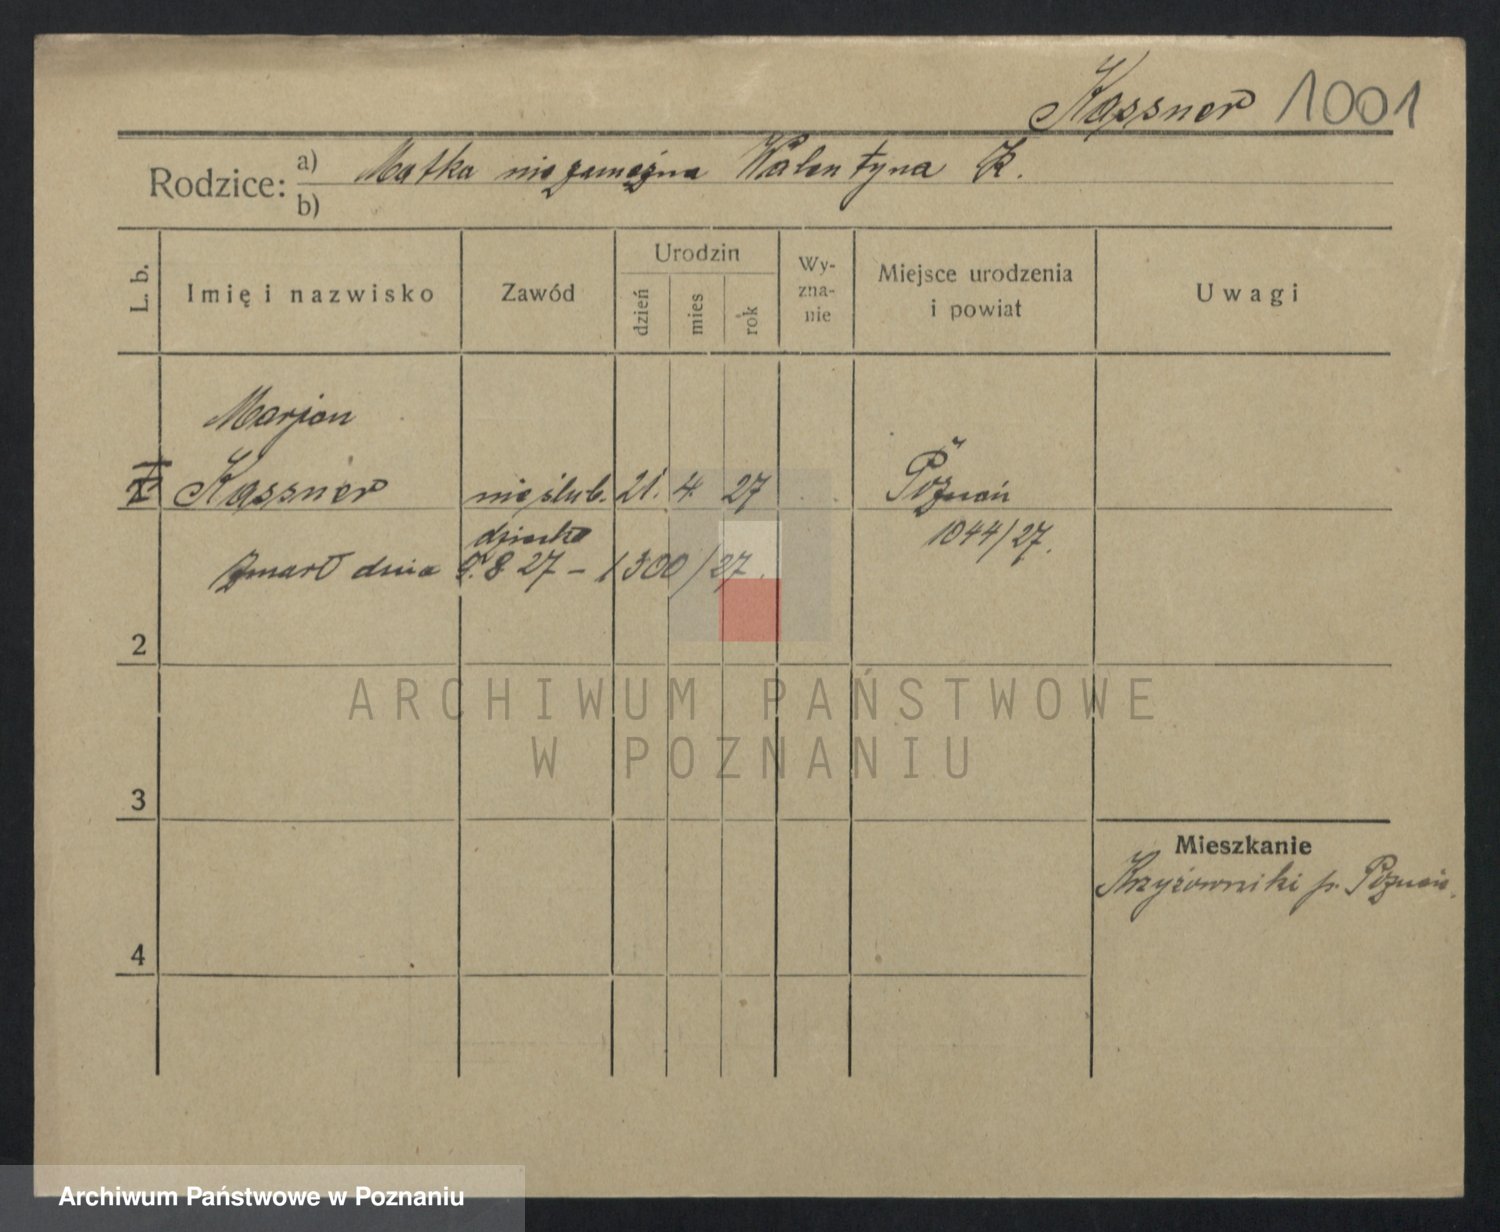 Kassner 1001
Rodzice: a) Matka niezamężna Walentyna K.
b)
L. b.
Imię i nazwisko
Zawód
Urodzin
dzień
mies
rok
Wy-
zna-
nie
Miejsce urodzenia
i powiat
Uwagi
Marjan
Kassner nieślub. 21. 4. 27 Poznań
dziecko 1044/27.
Zmarł dnia 9. 8 27 – 1300/27.
2
3
4
Mieszkanie
Krzyżowniki p. Poznań.
ARCHIWUM PAŃSTWOWE
W POZNANIU
Archiwum Państwowe w Poznaniu